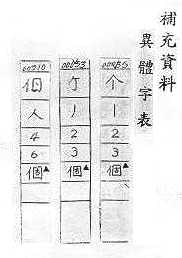 補充資料
異體字表
个
丨
2
3
個▲
亇
丿
2
3
個▲
00210
人
4
6
個▲